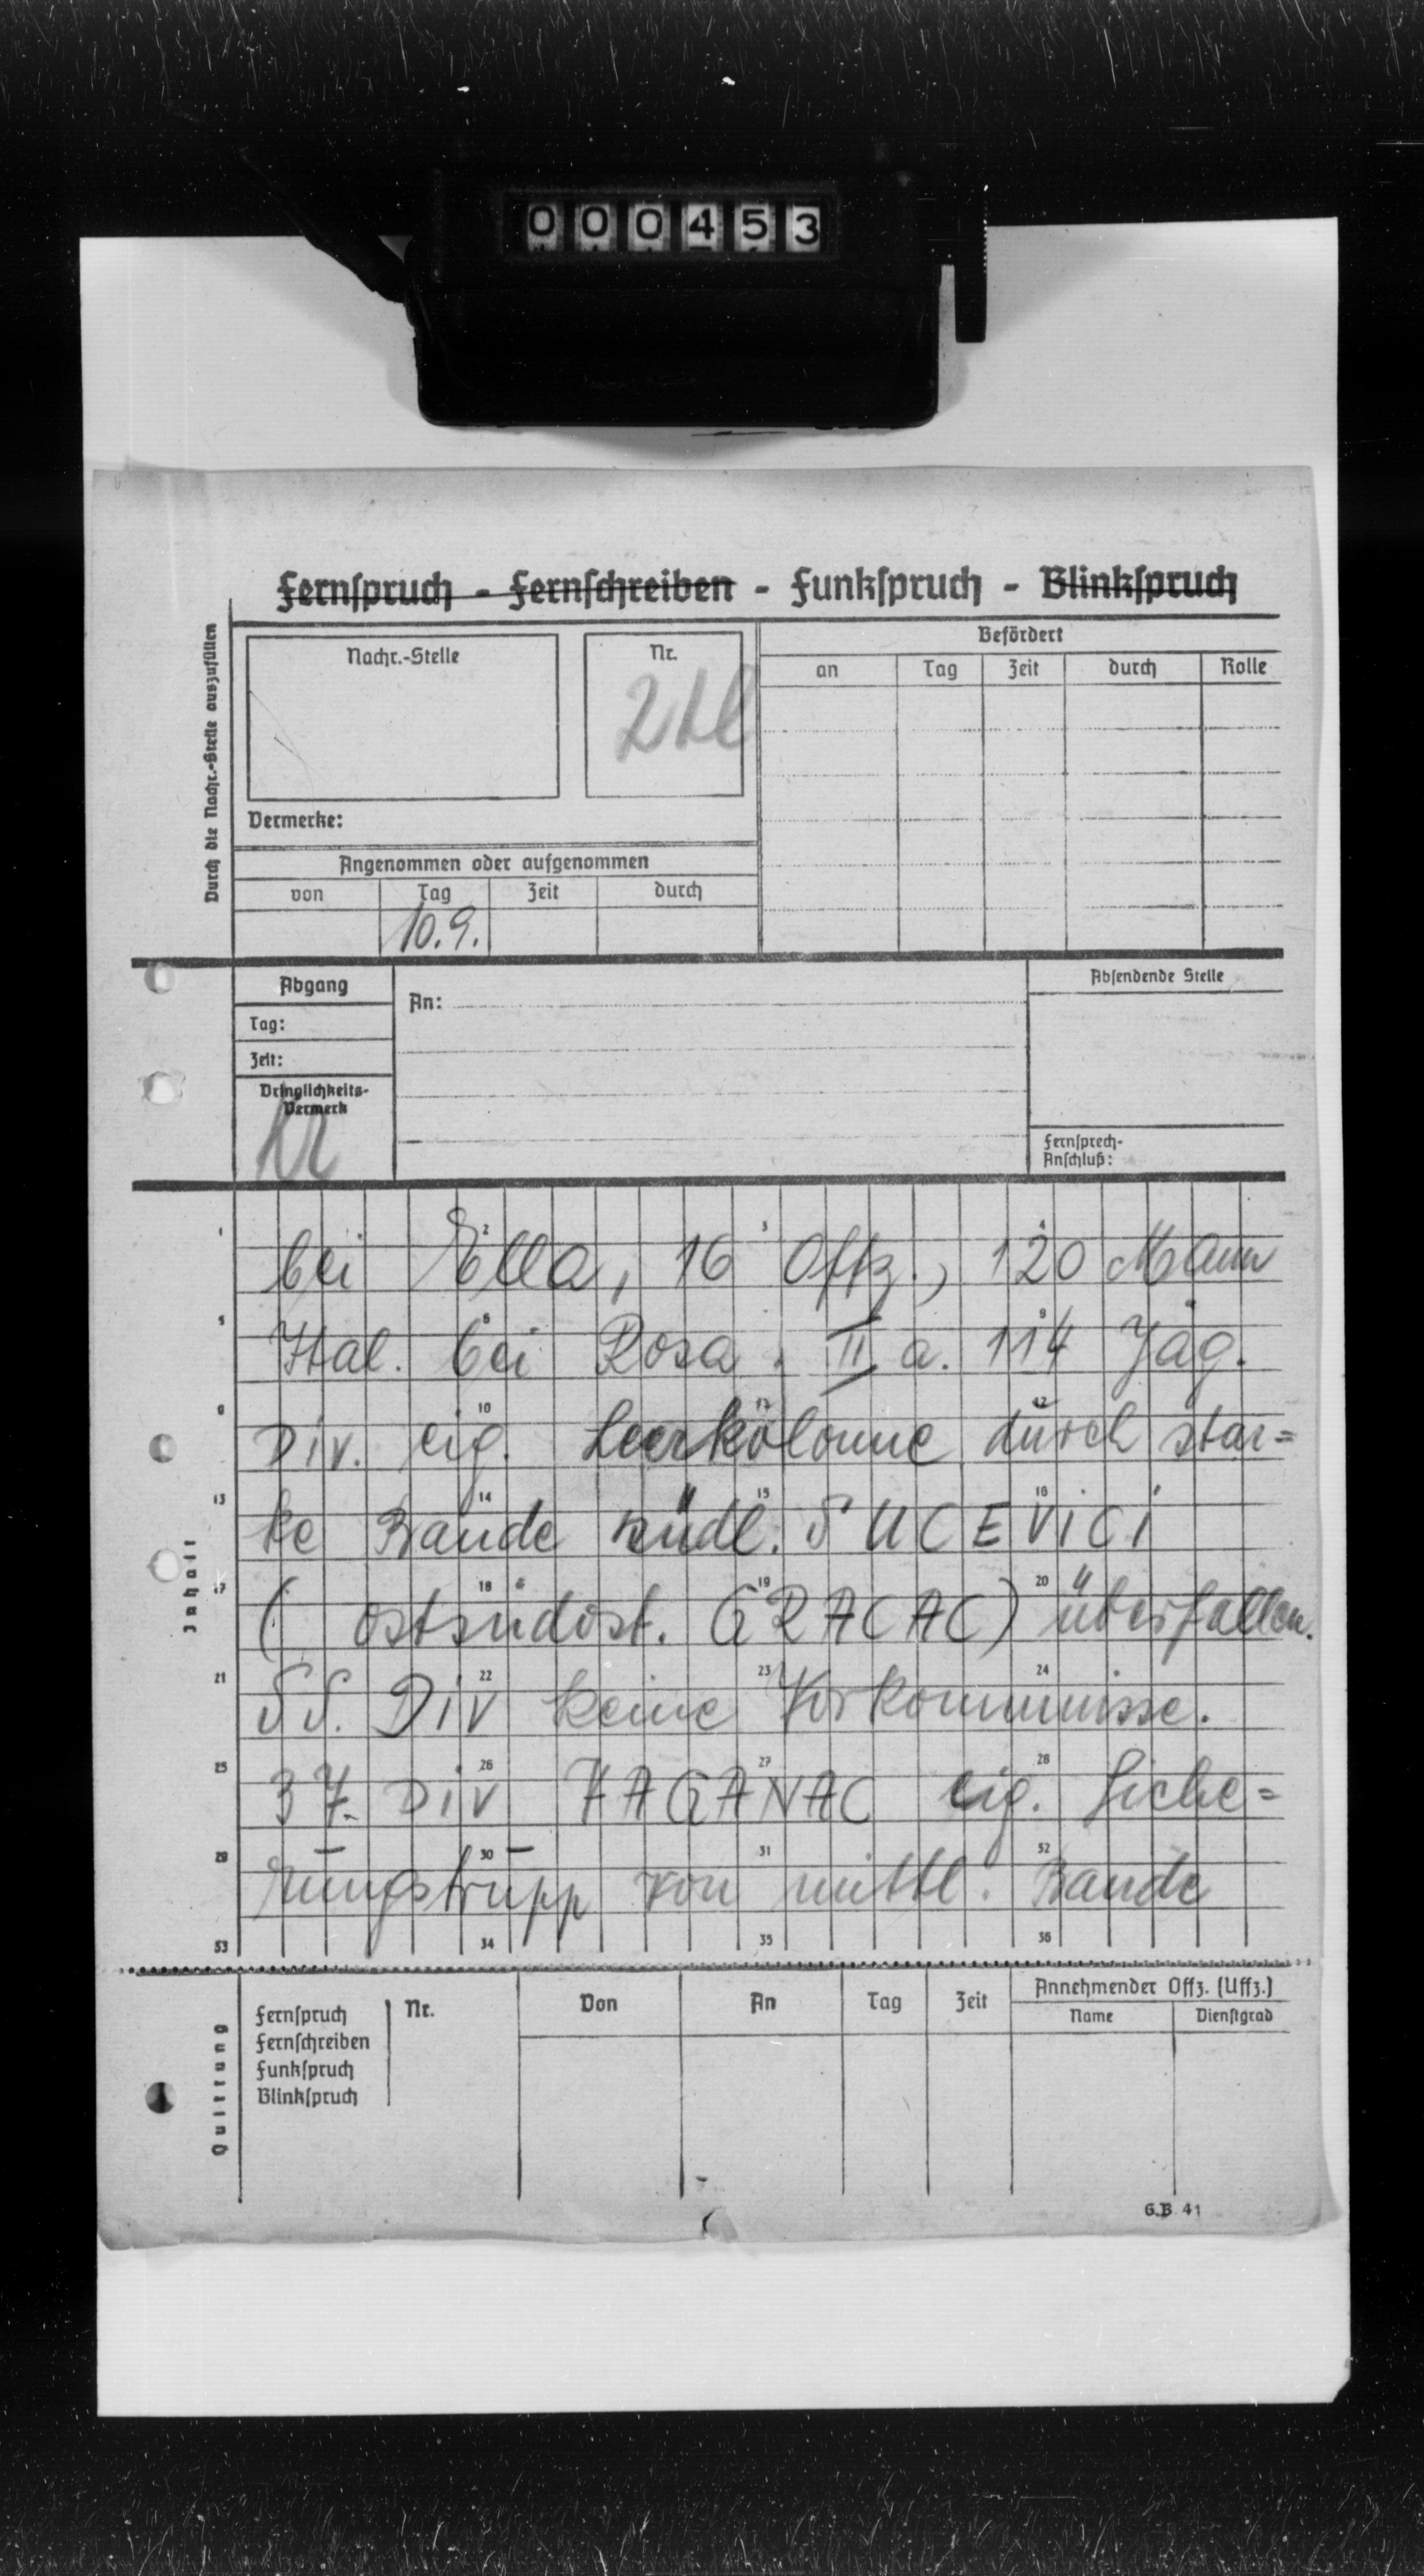 000453
Fernspruch - Fernschreiben - Funkspruch - Blinkspruch
Durch die Nachr.-Stelle auszufüllen
Nachr.-Stelle
Nr.
2tl
Befördert
an Tag Zeit durch Rolle
Vermerke:
Angenommen oder aufgenommen
von Tag Zeit durch
10.9.
Abgang
Tag:
Zeit:
Dringlichkeits-
Vermerk
KR
An:
Absendende Stelle
Fernsprech-
Anschluß:
Inhalt
1 2 3 4
bei Ella, 16 Offz., 120 Mann
5 6 8
Ital. bei Rosa. II a. 114 Jäg.
9 10 11 12
Div. eig. Leerkolonne durch star=
13 14 15 16
ke Bande südl. SUCEVICI
17 18 19 20
( ostsüdost. GRACAC) überfallen.
21 22 23 24
SS. Div keine Vorkommnisse.
25 26 27 28
37. Div VAGANAC eig. Siche=
29 30 31 32
rungstrupp von mittl. Bande
33 34 35 36
Quittung
Fernspruch
Fernschreiben
Funkspruch
Blinkspruch
Nr.
Von An Tag Zeit
Annehmender Offz. (Uffz.)
Name Dienstgrad
G.B 41